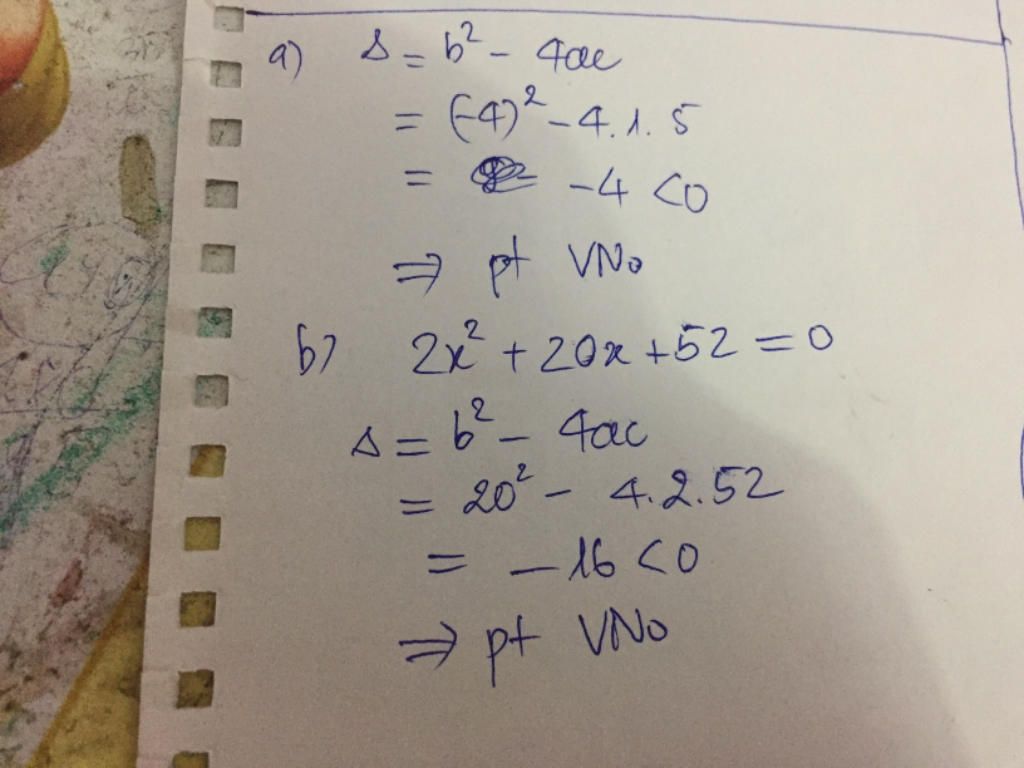 a) Δ = b² - 4ac
= (-4)² - 4.1.5
= -4 < 0
⇒ pt VNo
b) 2x² + 20x + 52 = 0
Δ = b² - 4ac
= 20² - 4.2.52
= -16 < 0
⇒ pt VNo